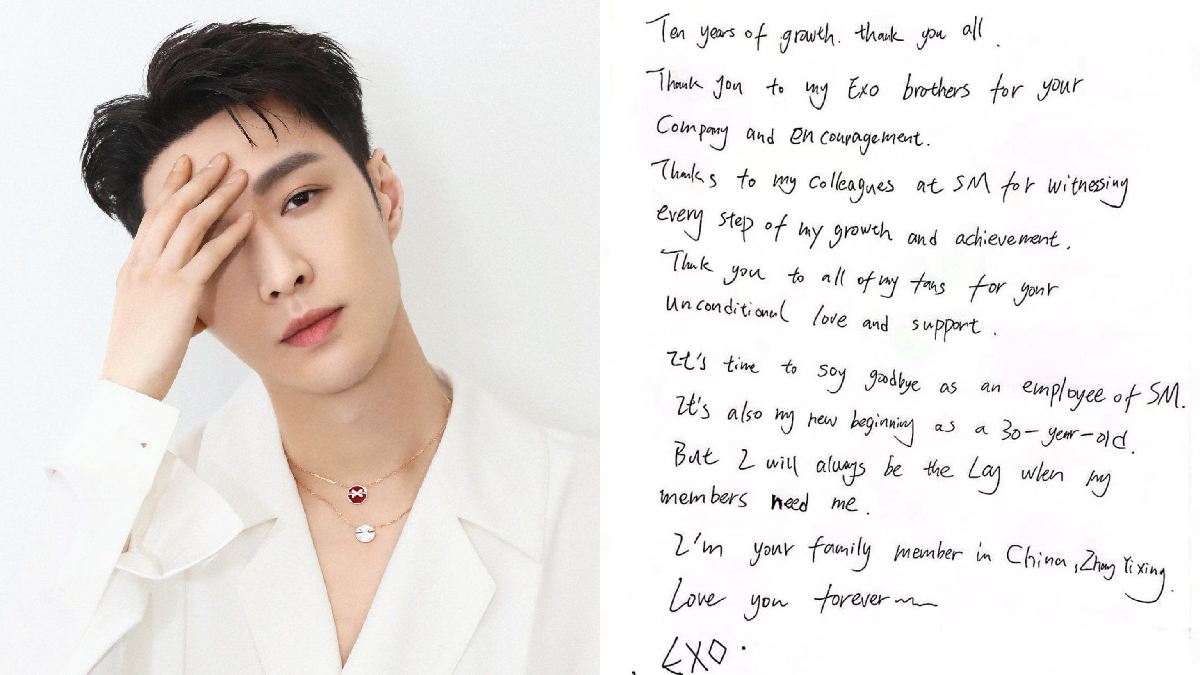 Ten years of growth. thank you all.
Thank you to my Exo brothers for your
Company and encouragement.
Thanks to my colleagues at SM for witnessing
every step of my growth and achievement.
Thank you to all of my fans for your
unconditional love and support.
It's time to say goodbye as an employee of SM.
It's also my new beginning as a 30-year-old.
But I will always be the Lay when my
members need me.
I'm your family member in China, Zhang Yixing.
Love you forever~~
EXO.